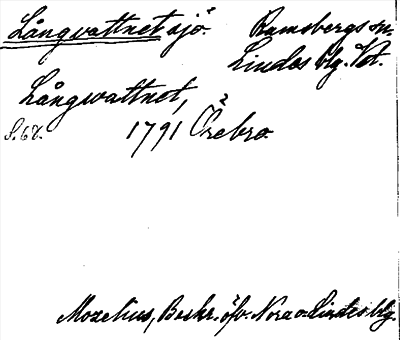 Långvattnet sjö. Ramsbergs sn.
Lindes blg. Vstm.
Långwattnet,
S. 68. 1791 Örebro
Mozelius, Beskr. öfv. Nora o. Lindes blg.